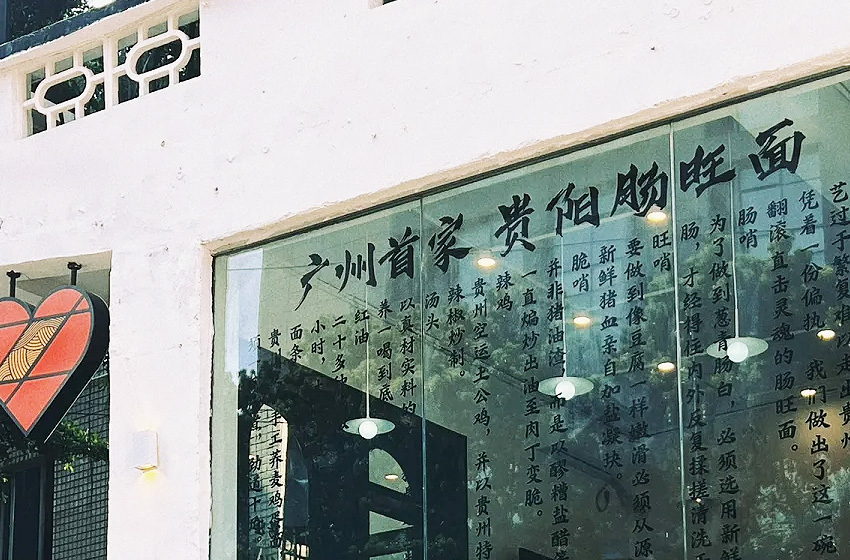 广州首家 贵阳肠旺面
艺过于繁复难以走出贵州
凭着一份偏执 我们做出了这一碗
翻滚直击灵魂的肠旺面。
肠哨
为了做到葱肓肠白，必须选用新鲜
肠，才经得住内外反复揉搓清洗
旺哨
要做到像豆腐一样嫩滑必须从源
新鲜猪血亲自加盐凝块。
脆哨
并非猪油渣 而是以醪糟盐醋
一直煸炒出油至肉丁变脆。
辣鸡
贵州空运土公鸡，并以贵州特
辣椒炒制。
汤头
以真材实料的
养一喝到底
红油
二十多
小时，
面条
手工荞麦鸡蛋面
劲道